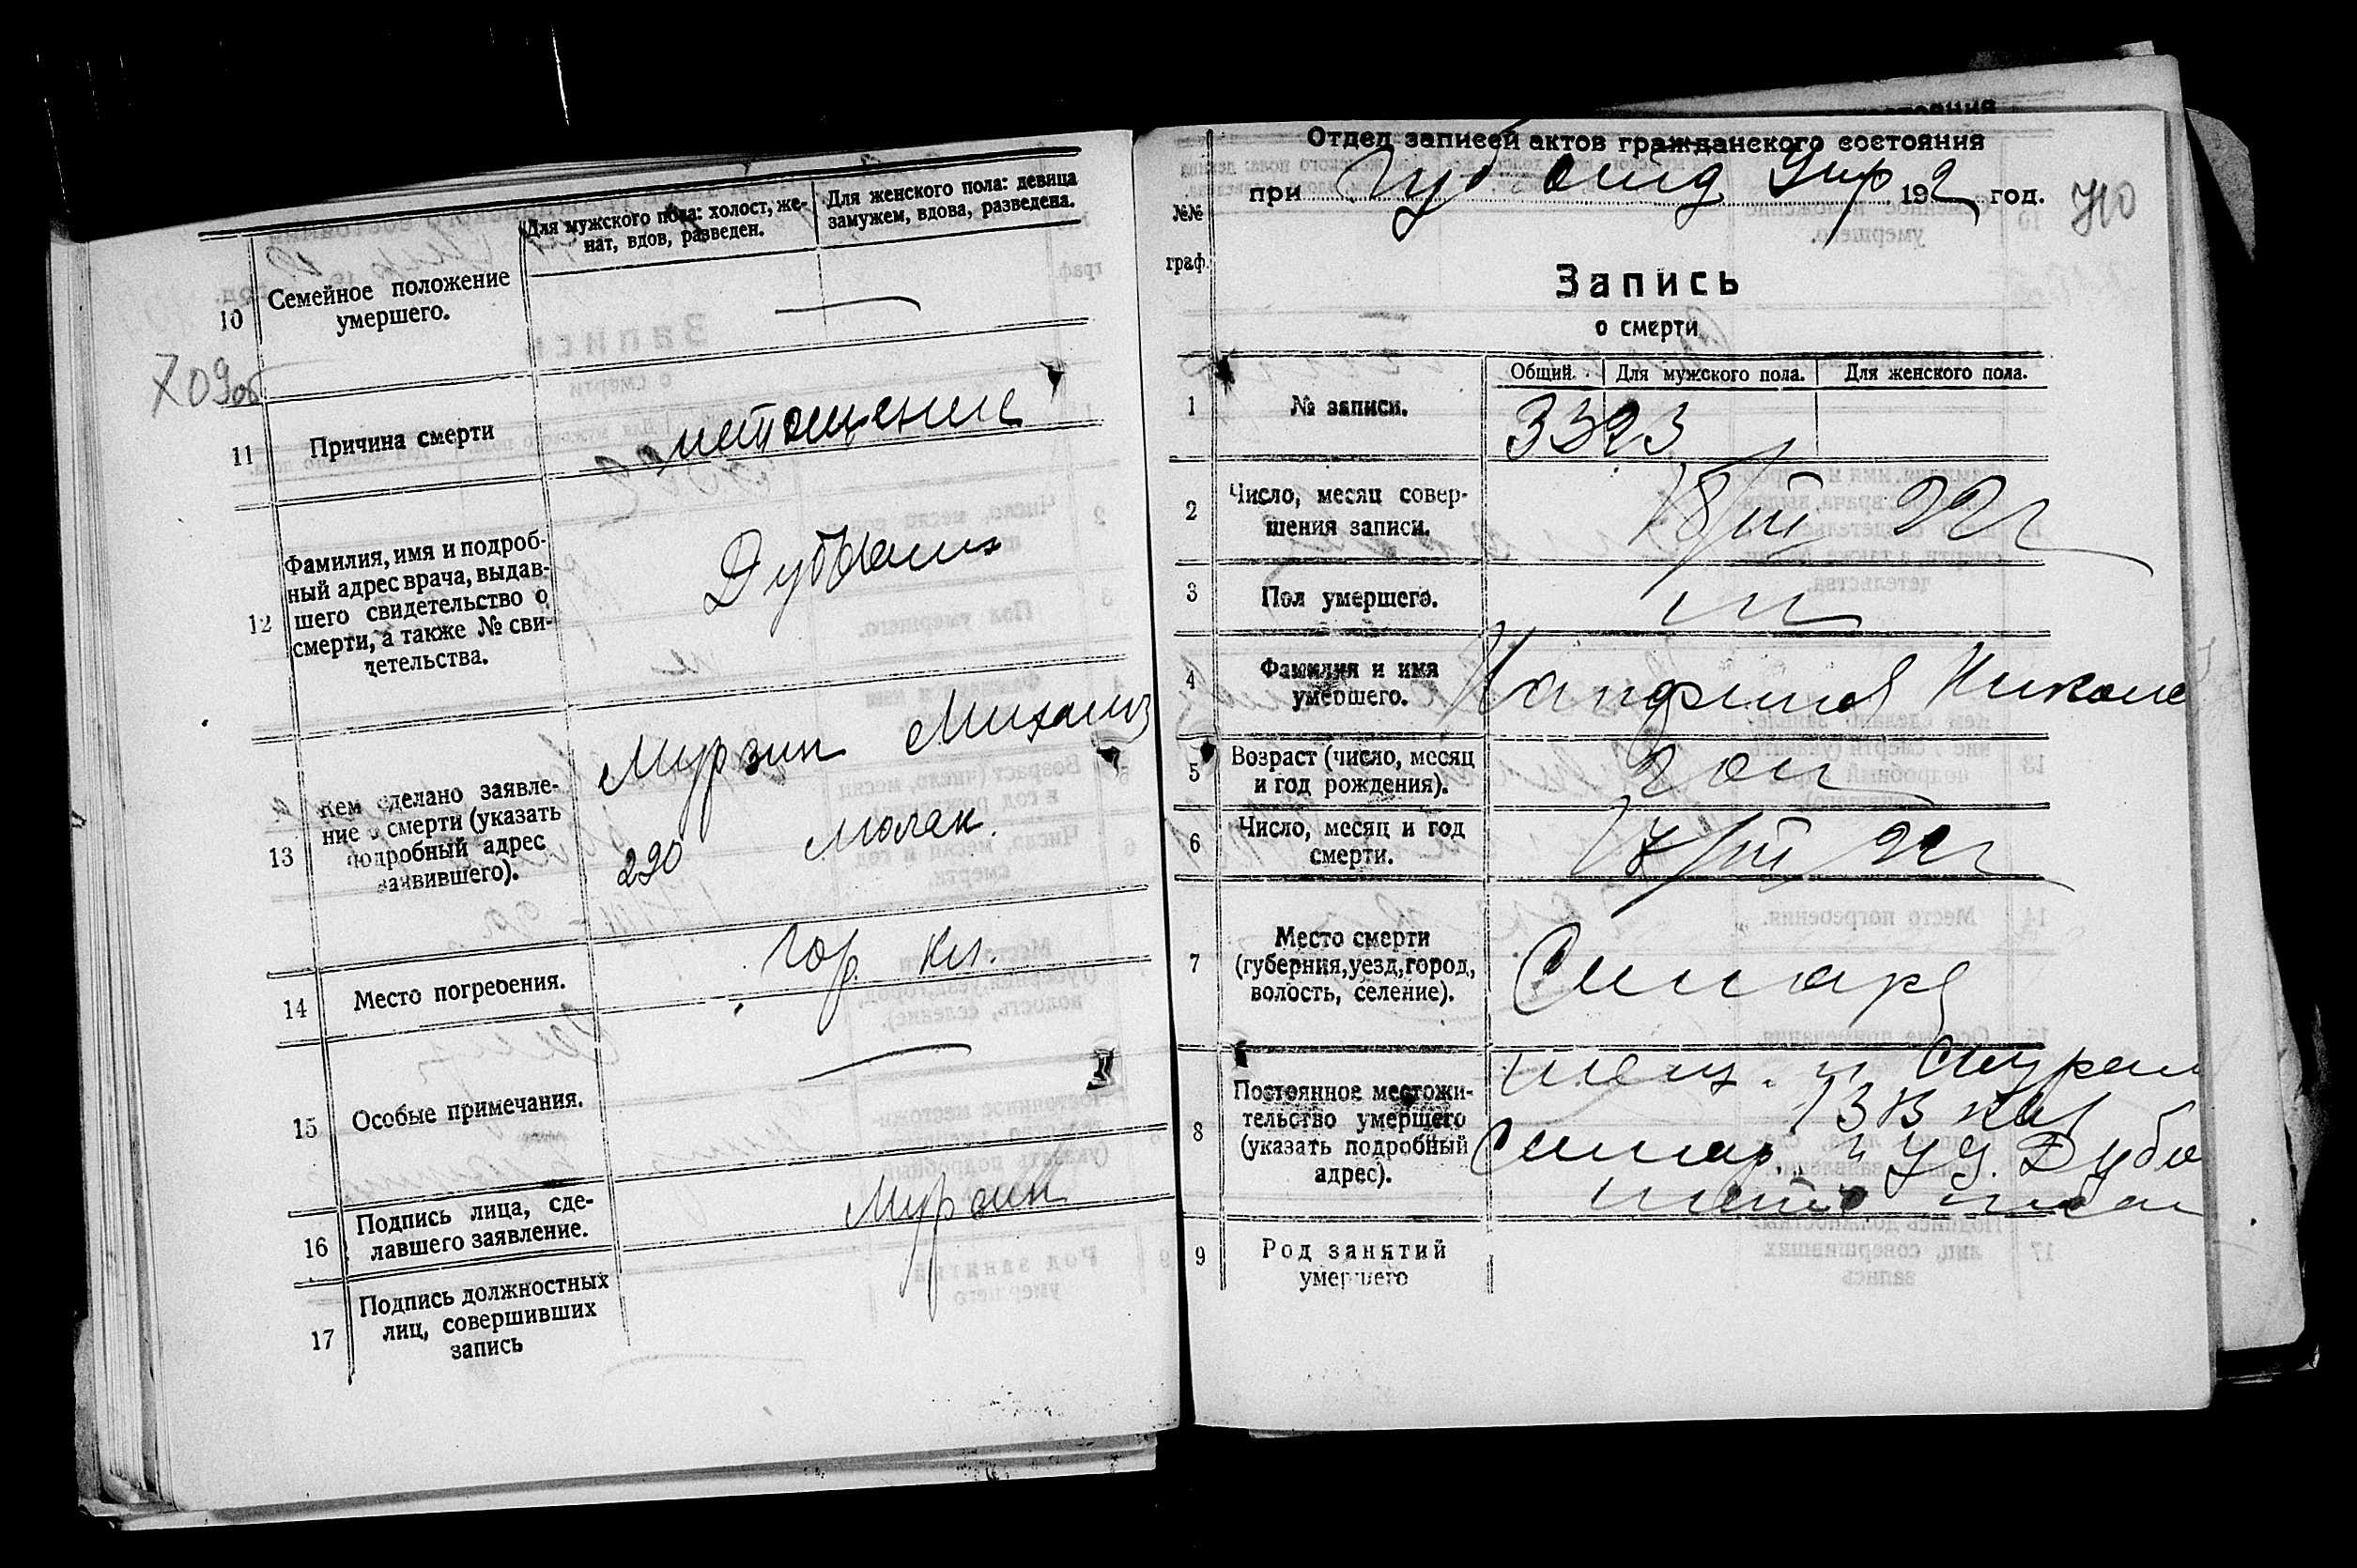 709об
10
Семейное положение
умершего.
Для мужского пола: холост, же-
нат, вдов, разведен.
Для женского пола: девица
замужем, вдова, разведена.
—
11
Причина смерти
истощение
12
Фамилия, имя и подроб-
ный адрес врача, выдав-
шего свидетельство о
смерти, а также № сви-
детельства.
13
Кем сделано заявле-
ние о смерти (указать
подробный адрес
заявившего).
Мурзин Михаил
290 Молак.
14
Место погребения.
гор. кл.
15
Особые примечания.
—
16
Подпись лица, сде-
лавшего заявление.
Мурзин
17
Подпись должностных
лиц, совершивших
запись
Отдел записей актов гражданского состояния
при Губ отд Упр 1922 год.
710
№№
граф.
Запись
о смерти
Общий.
Для мужского пола.
Для женского пола.
1
№ записи.
3323
2
Число, месяц совер-
шения записи.
18/III 22г
3
Пол умершего.
м
4
Фамилия и имя
умершего.
Николай
5
Возраст (число, месяц
и год рождения).
6
Число, месяц и год
смерти.
17/III 22г
7
Место смерти
(губерния, уезд, город,
волость, селение).
8
Постоянное местожи-
тельство умершего
(указать подробный
адрес).
9
Род занятий
умершего